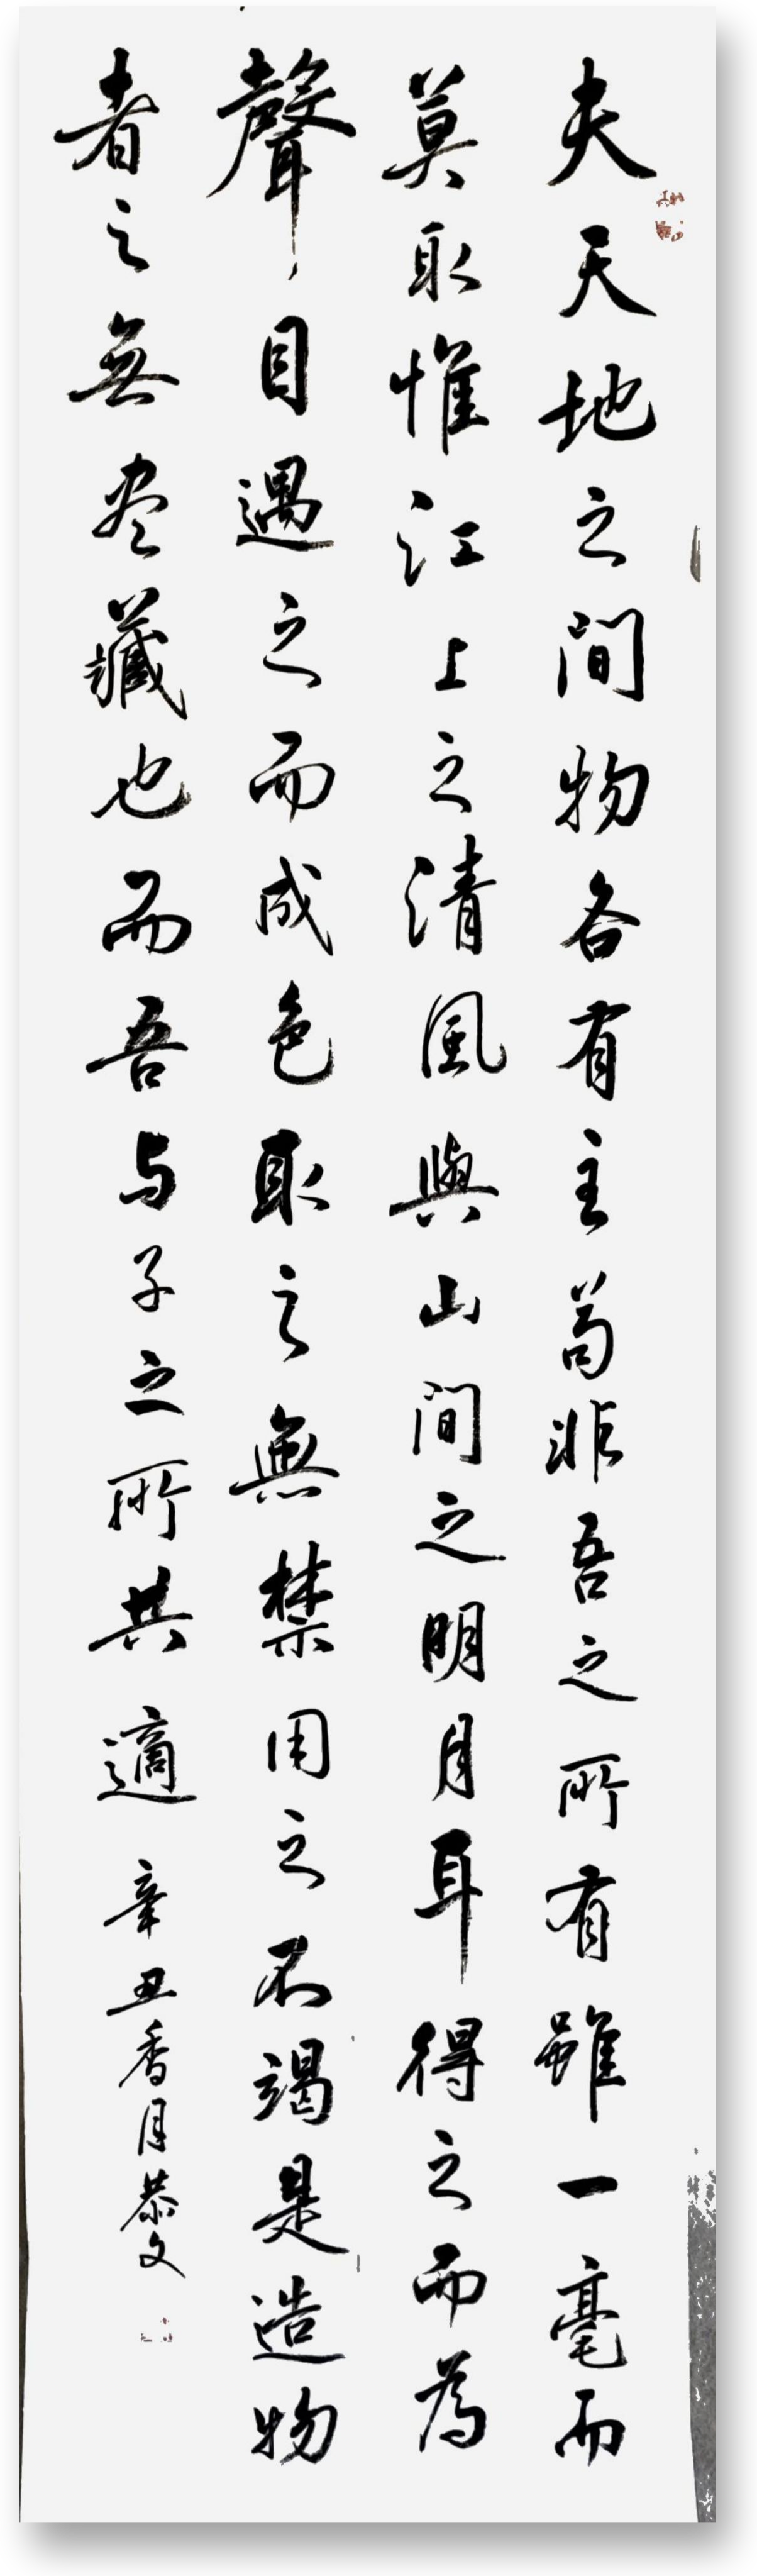 夫天地之間物各有主苟非吾之所有雖一毫而
莫取惟江上之清風與山間之明月耳得之而為
聲目遇之而成色取之無禁用之不竭是造物
者之無尽藏也而吾与子之所共適 辛丑香月恭文